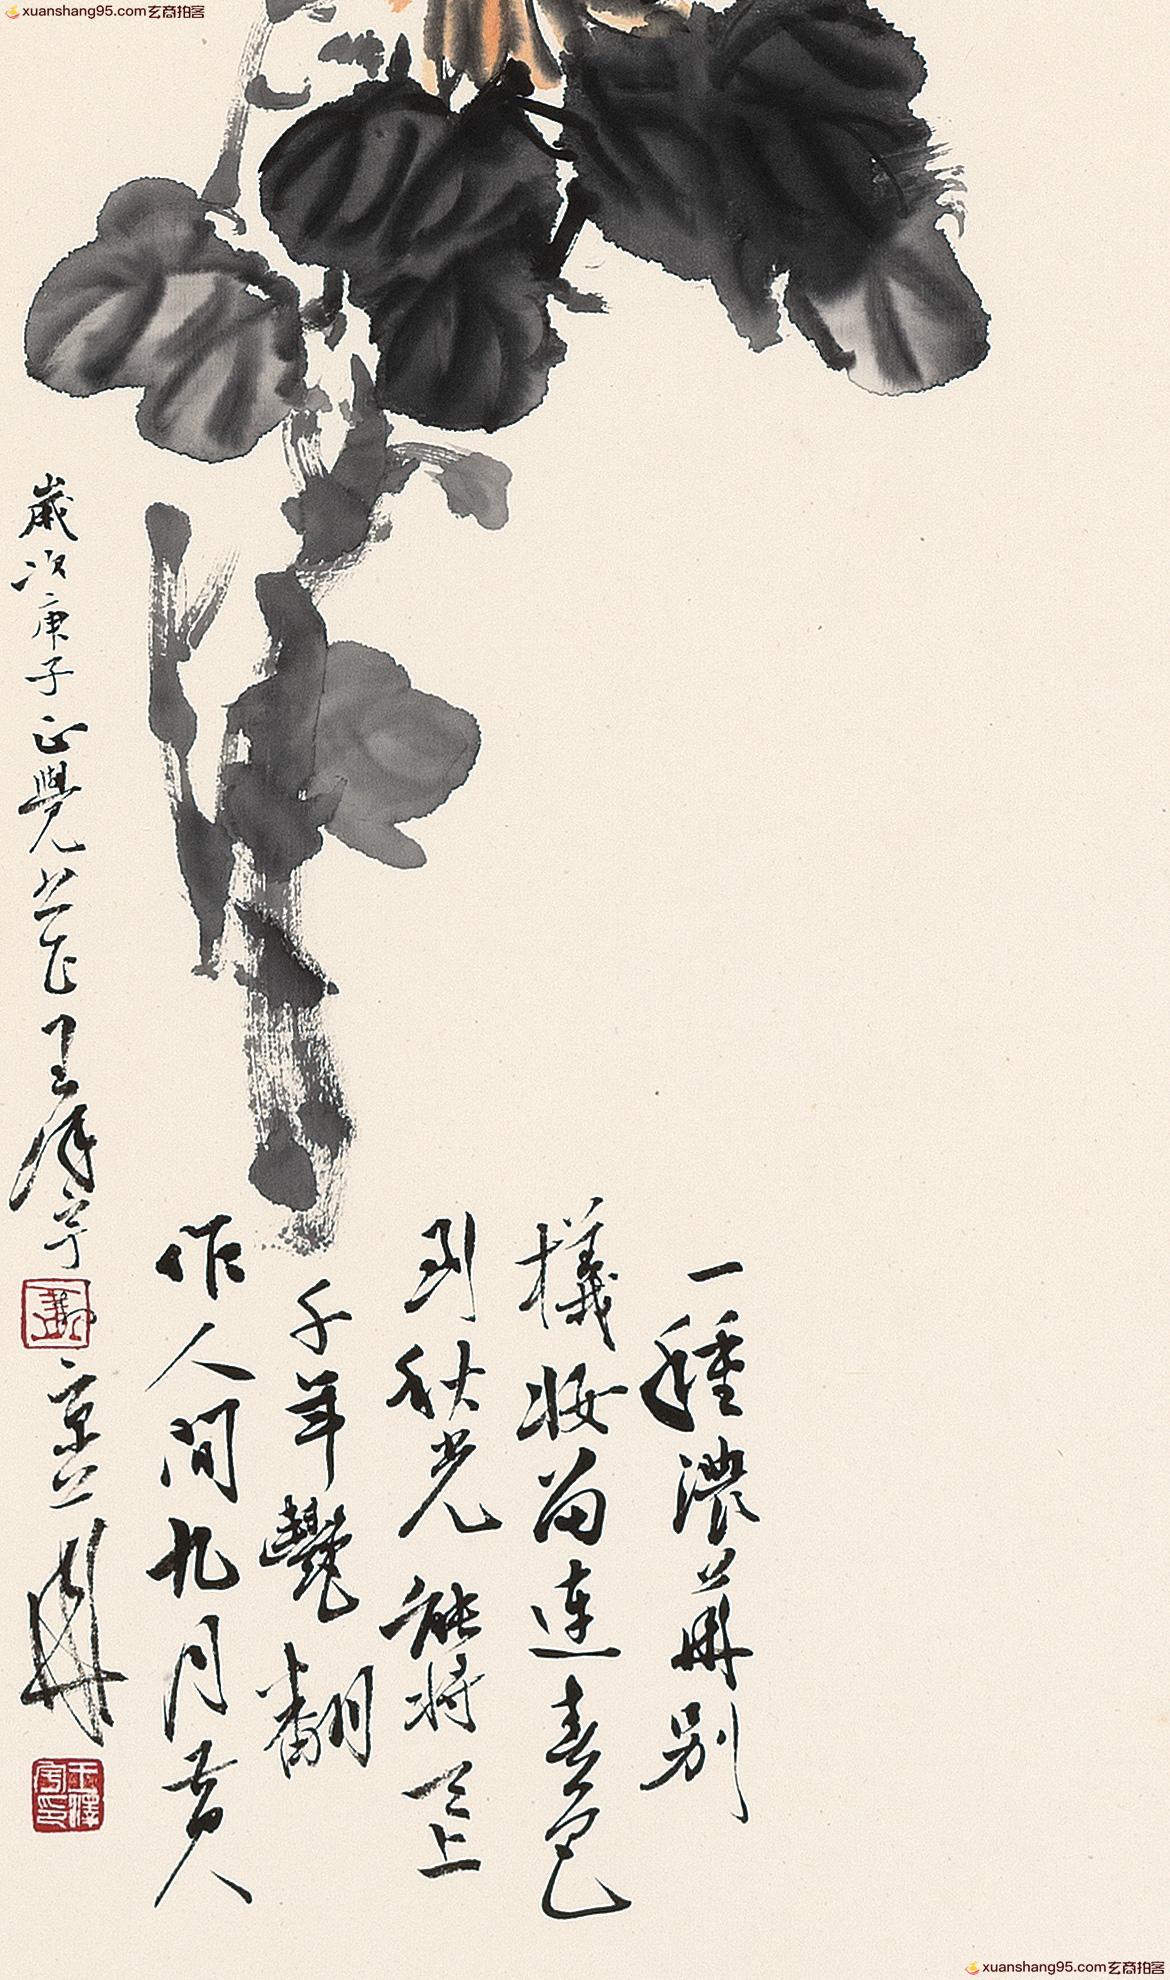 xuanshang95.com玄商拍客
一種濃華別
樣妝留連春色
到秋光能將天上
千年艷翻
作人間九月黄
歲次庚子正覺
京華
王澤
xuanshang95.com玄商拍客